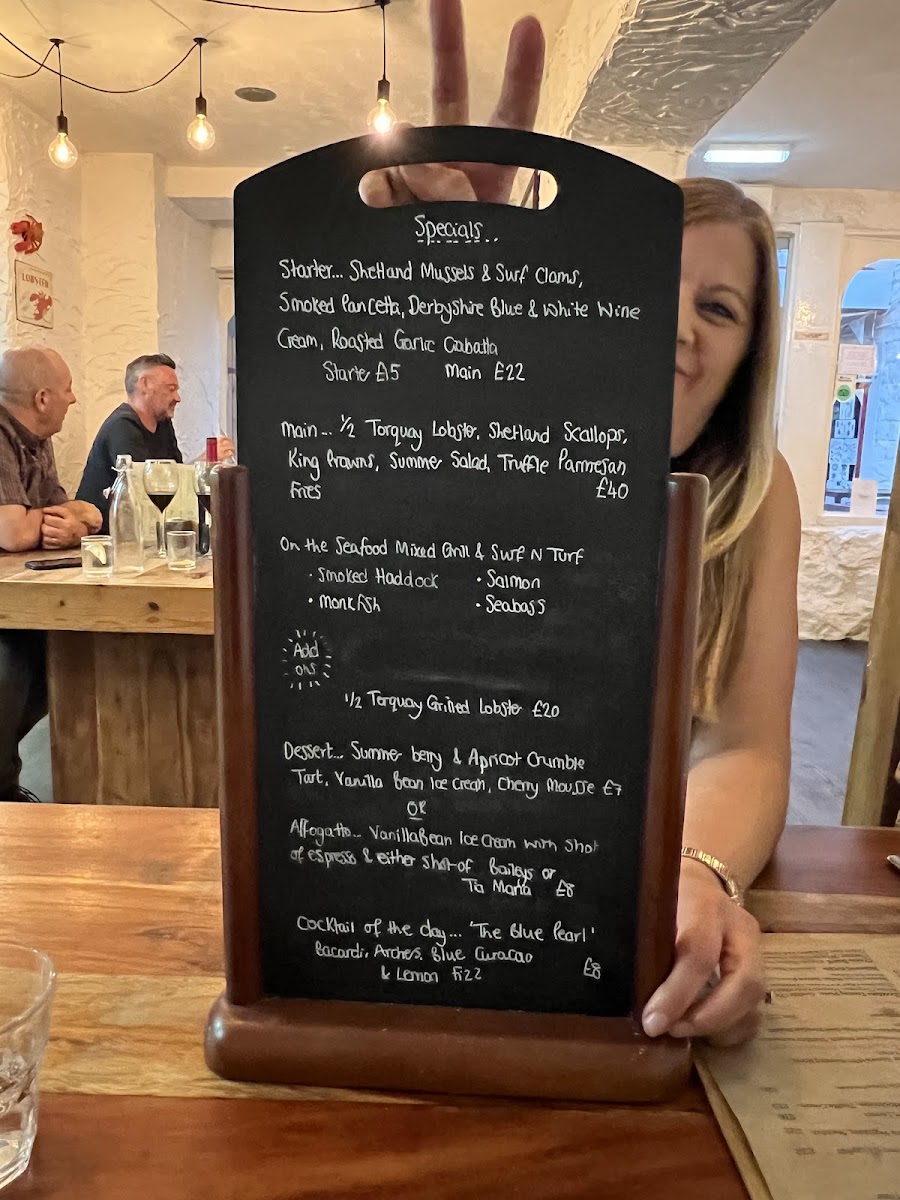 LOBSTER
Specials..
Starter... Shetland Mussels & Surf Clams,
Smoked Pancetta, Derbyshire Blue & White Wine
Cream, Roasted Garlic Ciabatta
Starter £15 Main £22
Main... 1/2 Torquay Lobster, Shetland Scallops,
King Prawns, Summer Salad, Truffle Parmesan
Fries £40
On the Seafood Mixed Grill & Surf N Turf
• Smoked Haddock • Salmon
• Monkfish • Seabass
Add
ons
1/2 Torquay Grilled Lobster £20
Dessert... Summer berry & Apricot Crumble
Tart, Vanilla Bean Ice Cream, Cherry Mousse £7
OR
Affogatto... Vanilla Bean Ice Cream with shot
of espresso & either shot of Baileys or
Tia Maria £8
Cocktail of the day... 'The Blue Pearl'
Bacardi, Archers, Blue Curacao
& Lemon Fizz £8